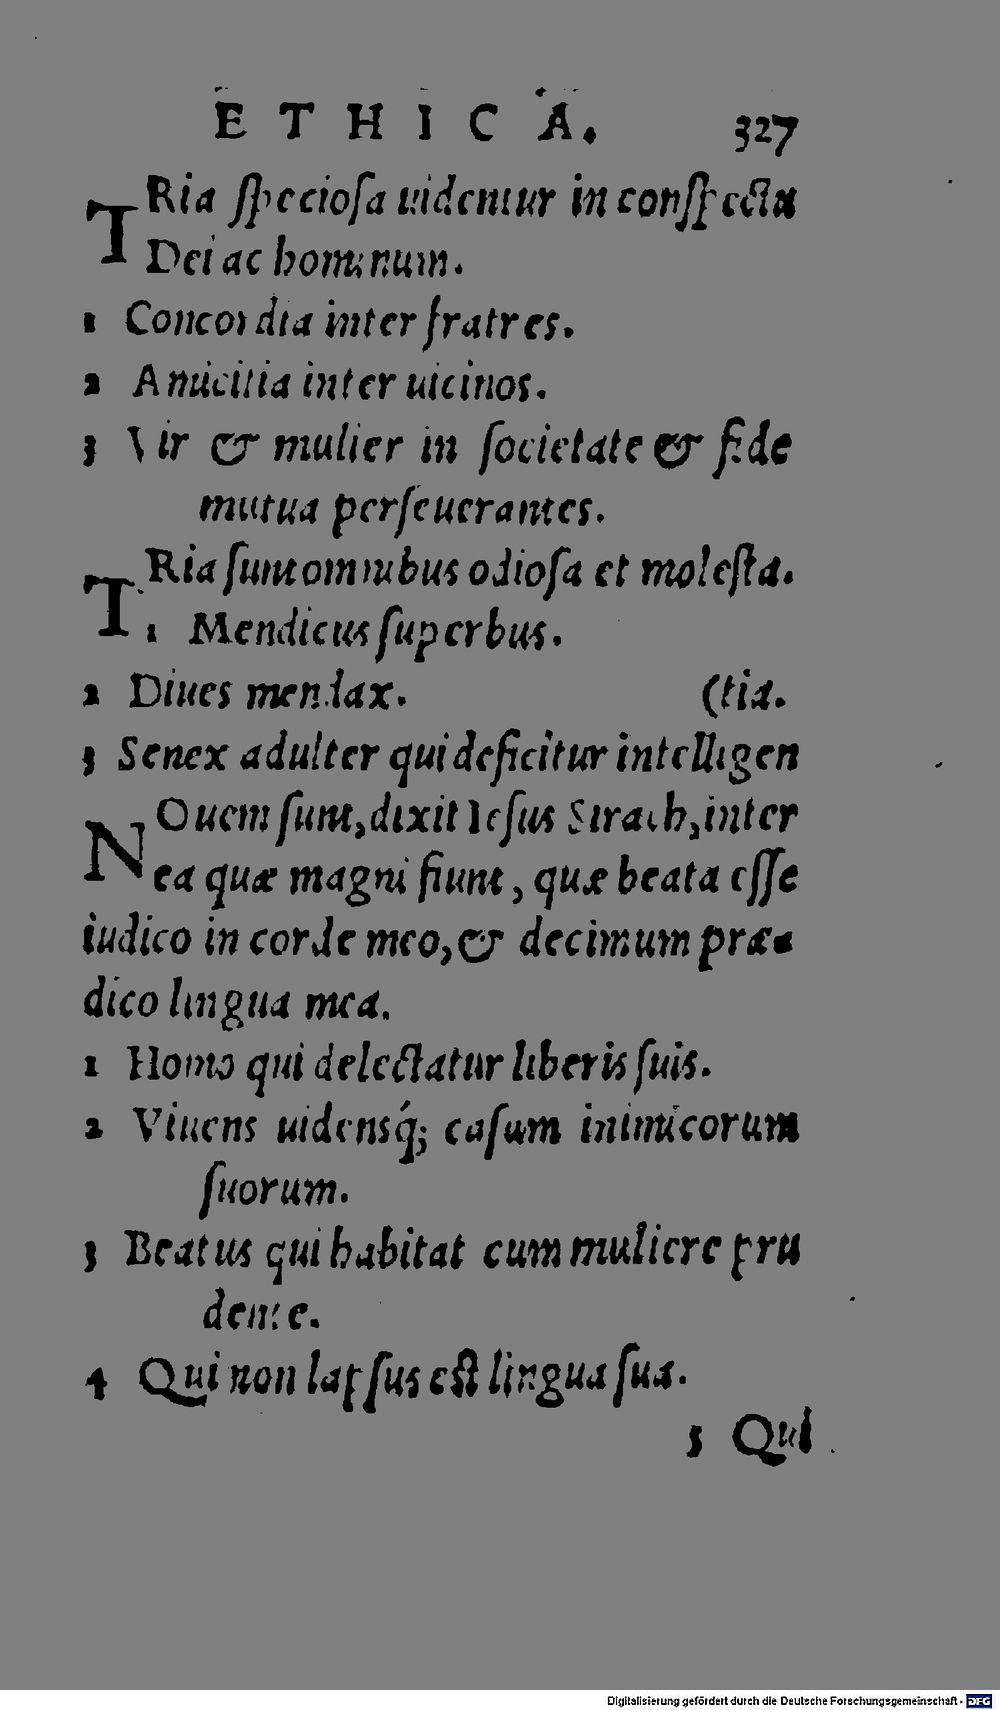 ETHICA. 327
TRia ſpecioſa uidentur in conſpectu
Dei ac hominum.
1 Concordia inter fratres.
2 Amicitia inter uicinos.
3 Vir & mulier in ſocietate & fide
mutua perſeuerantes.
TRia ſunt omnibus odioſa et moleſta.
1 Mendicus ſuperbus.
2 Diues mendax. (tia.
3 Senex adulter qui deficitur intelligen
NOuem ſunt, dixit Ieſus Sirach, inter
ea quæ magni fiunt, quæ beata eſſe
iudico in corde meo, & decimum præ-
dico lingua mea.
1 Homo qui delectatur liberis ſuis.
2 Viuens uidensq́; caſum inimicorum
ſuorum.
3 Beatus qui habitat cum muliere pru
dente.
4 Qui non lapſus eſt lingua ſua.
5 Qui
Digitalisierung gefördert durch die Deutsche Forschungsgemeinschaft - DFG